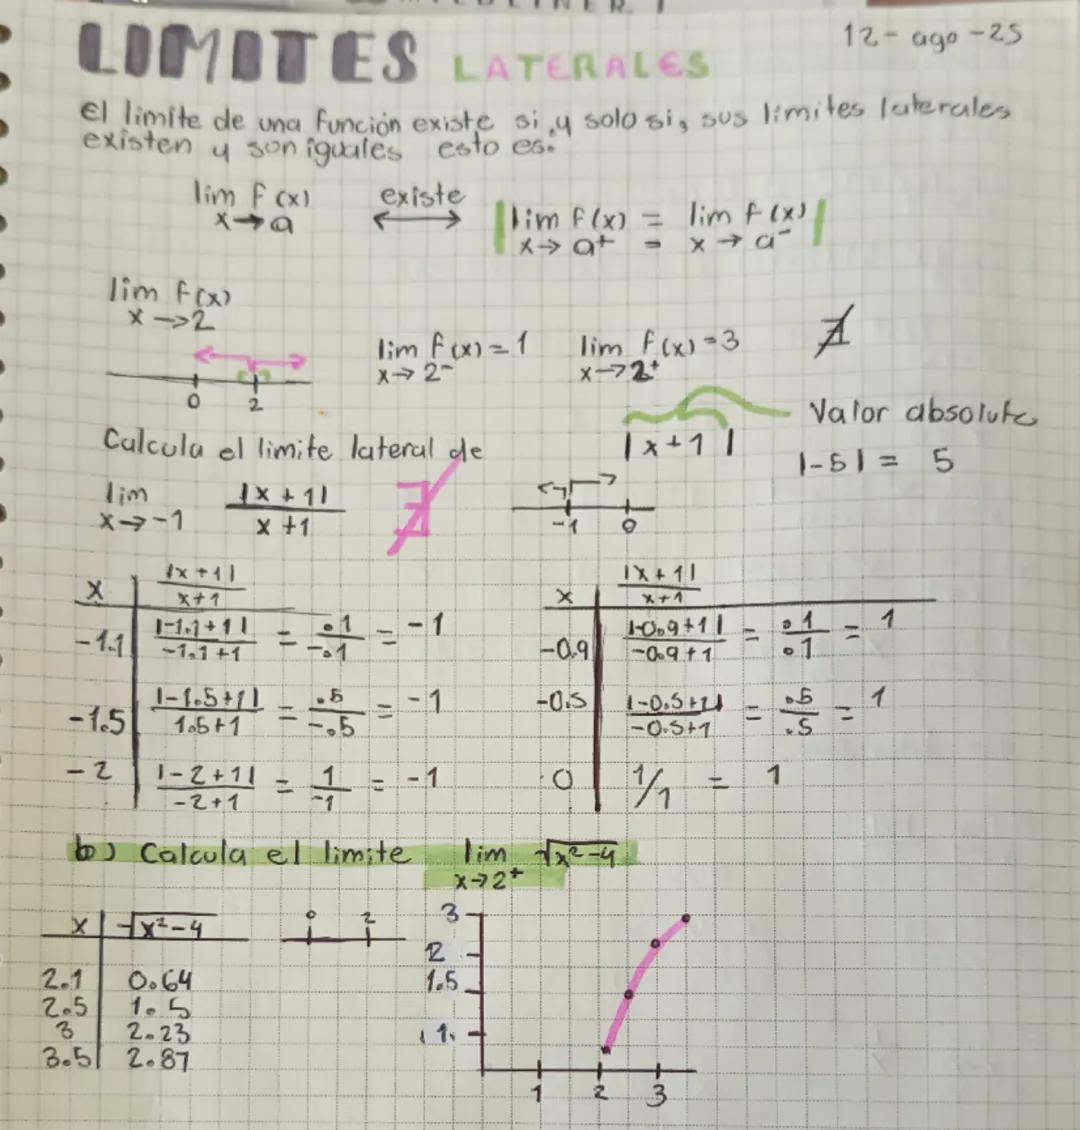 12- ago -25
LIMITES LATERALES
el limite de una función existe si, y solo si, sus limites laterales
existen y son iguales esto es.
lim f(x) existe lim f(x) = lim f(x)
x→a ⟷ x→a+ = x→a-
lim f(x)
x→2
lim f(x)=1 lim f(x)=3 ∄
x→2- x→2+
0 2
Valor absoluto
Calcula el limite lateral de |x+1|
|-5| = 5
lim |x+1| ∄
x→-1 x+1
-1 0
x |x+1|/x+1
-1.1 |-1.1+1|/-1.1+1 = .1/-.1 = -1
-1.5 |-1.5+1|/1.5+1 = .5/-.5 = -1
-2 |-2+1|/-2+1 = 1/-1 = -1
x |x+1|/x+1
-0.9 |-0.9+1|/-0.9+1 = .1/.1 = 1
-0.5 |-0.5+1|/-0.5+1 = .5/.5 = 1
0 1/1 = 1
b) Calcula el limite lim √x²-4
x→2+
x √x²-4
2.1 0.64
2.5 1.5
3 2.23
3.5 2.87
0 2
3
2
1.5
1.
1 2 3